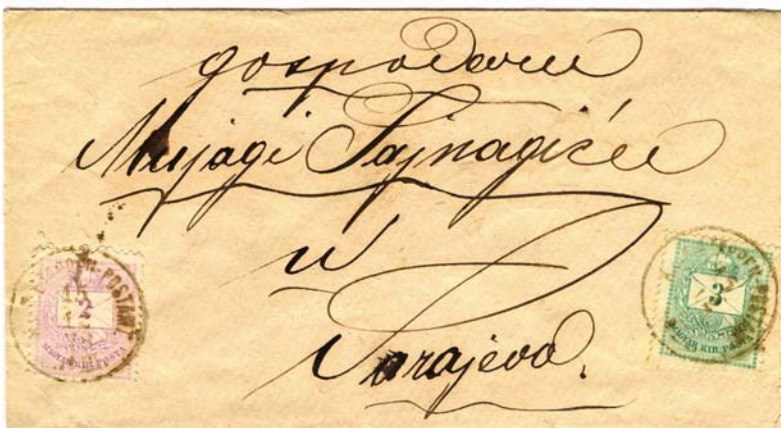 gospodaru
Mujagi Šajnagiću
u
Sarajevo.
2
MAGYAR KIR. POSTA
3
MAGYAR KIR. POSTA